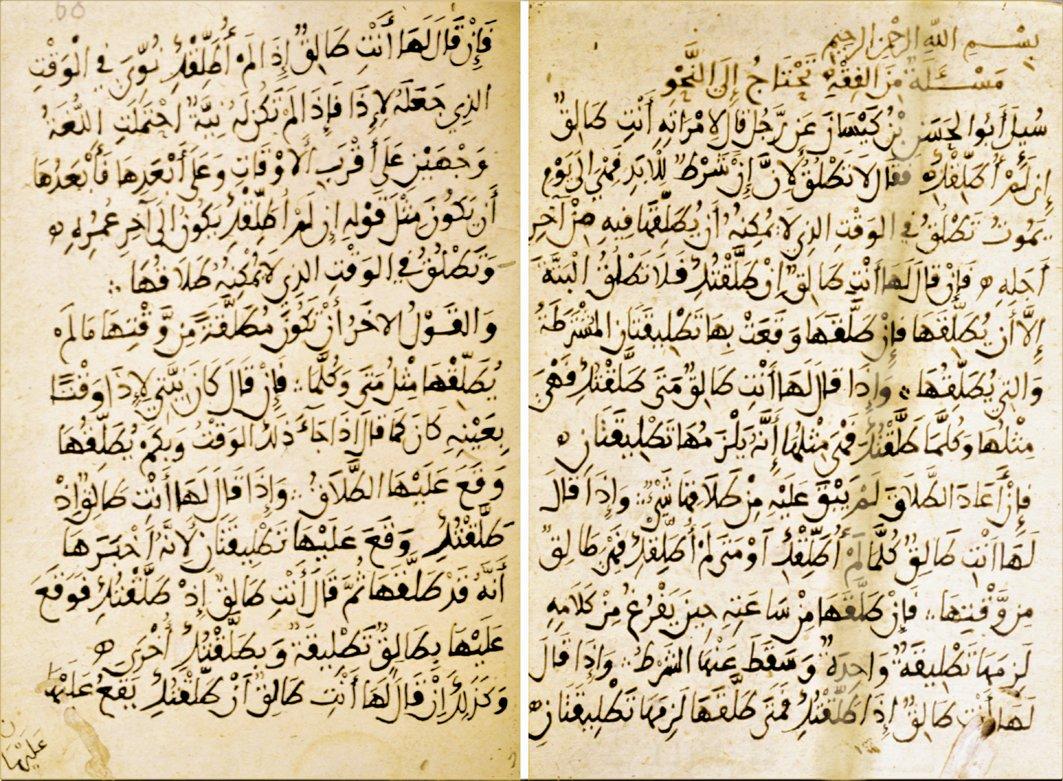 بِسْمِ اللهِ الرَّحْمٰنِ الرَّحِيمِ
مَسْئَلَةٌ مِنَ الفِقْهِ تَحْتَاجُ إِلَى النَّحْوِ
سُيِلَ أَبُو الحَسَنِ بْنُ كَيْسَانَ عَنْ رَجُلٍ قَالَ لِامْرَأَتِهِ أَنْتِ طَالِقٌ
إِنْ لَمْ أُطَلِّقْكِ فَقَالَ لَا تَطْلُقُ لِأَنَّ إِنْ شَرْطٌ لِلْأَبَدِ فَهِيَ إِلَى يَوْمِ
يَمُوتُ تَطْلُقُ فِي الوَقْتِ الذِي لَا يُمْكِنُهُ أَنْ يُطَلِّقَهَا فِيهِ مِنْ آخِرِ
أَجَلِهِ فَإِنْ قَالَ لَهَا أَنْتِ طَالِقٌ إِنْ طَلَّقْتُكِ فَلَا تَطْلُقُ البَتَّةَ
إِلَّا أَنْ يُطَلِّقَهَا فَإِنْ طَلَّقَهَا وَقَعَتْ بِهَا تَطْلِيقَتَانِ المُشْتَرَطَةُ
وَالتِي يُطَلِّقُهَا وَإِذَا قَالَ لَهَا أَنْتِ طَالِقٌ مَتَى طَلَّقْتُكِ فَهْيَ
مِثْلُهَا وَكُلَّمَا طَلَّقْتُكِ فَهْيَ مِثْلُهَا إِنَّهُ يَلْزَمُهَا تَطْلِيقَتَانِ
فَإِنْ أَعَادَ الطَّلَاقَ لَمْ يَبْقَ عَلَيْهِ مِنْ طَلَاقِهَا شَيْءٌ وَإِذَا قَالَ
لَهَا أَنْتِ طَالِقٌ كُلَّمَا لَمْ أُطَلِّقْكِ أَوْ مَتَى لَمْ أُطَلِّقْكِ فَهْيَ طَالِقٌ
مِنْ وَقْتِهَا فَإِنْ طَلَّقَهَا مِنْ سَاعَتِهِ حِينَ يَفْرُغُ مِنْ كَلَامِهِ
لَزِمَهَا تَطْلِيقَةٌ وَاحِدَةٌ وَسَقَطَ عَنْهَا الشَّرْطُ وَإِذَا قَالَ
لَهَا أَنْتِ طَالِقٌ إِذَا طَلَّقْتُكِ فَمَتَى طَلَّقَهَا لَزِمَهَا تَطْلِيقَتَانِ
فَإِنْ قَالَ لَهَا أَنْتِ طَالِقٌ إِذَا لَمْ أُطَلِّقْكِ نُوِّيَ فِي الوَقْتِ
الذِي جَعَلَهُ لِإِذَا فَإِذَا لَمْ تَكُنْ لَهُ نِيَّةٌ احْتَمَلَتِ اللُّغَةُ
وَجْهَيْنِ عَلَى أَقْرَبِ الأَوْقَاتِ وَعَلَى أَبْعَدِهَا فَأَبْعَدُهَا
أَنْ يَكُونَ مِثْلَ قَوْلِهِ إِنْ لَمْ أُطَلِّقْكِ يَكُونُ إِلَى آخِرِ عُمُرِهِ
وَتَطْلُقُ فِي الوَقْتِ الذِي لَا يُمْكِنُهُ طَلَاقُهَا
وَالقَوْلُ الآخَرُ أَنْ تَكُونَ مُطَلَّقَةً مِنْ وَقْتِهَا مَا لَمْ
يُطَلِّقْهَا مِثْلُ مَتَى وَكُلَّمَا فَإِنْ قَالَ كَانَ نِيَّتِي لِإِذَا وَقْتًا
بِعَيْنِهِ كَانَ كَمَا قَالَ إِذَا جَاءَ ذَلِكَ الوَقْتُ وَلَمْ يُطَلِّقْهَا
وَقَعَ عَلَيْهَا الطَّلَاقُ وَإِذَا قَالَ لَهَا أَنْتِ طَالِقٌ إِذْ
طَلَّقْتُكِ وَقَعَ عَلَيْهَا تَطْلِيقَتَانِ لِأَنَّهُ أَخْبَرَهَا
أَنَّهُ قَدْ طَلَّقَهَا ثُمَّ قَالَ أَنْتِ طَالِقٌ إِذْ طَلَّقْتُكِ فَوَقَعَ
عَلَيْهَا بِطَالِقٌ تَطْلِيقَةٌ وَبِطَلَّقْتُكِ أُخْرَى
وَكَذَلِكَ إِنْ قَالَ لَهَا أَنْتِ طَالِقٌ أَنْ طَلَّقْتُكِ يَقَعُ عَلَيْهَا
عَلَيْهَا